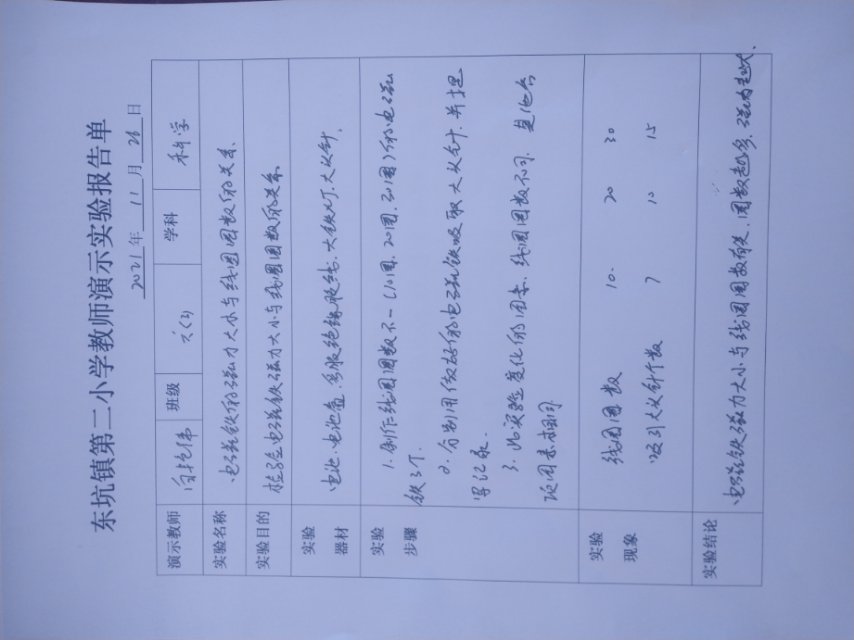 东坑镇第二小学教师演示实验报告单
2021年 11 月 26 日
演示教师 班级 六(3) 学科 科学
实验名称 电磁铁的磁力大小与线圈圈数的关系.
实验目的 检验电磁铁磁力大小与线圈圈数的关系.
实验器材 电池.电池盒.多股绝缘胶线.大铁钉.大头针.
实验步骤 1.制作线圈圈数不一(10圈,20圈,30圈)的电磁
铁3个.
2.分别用做好的电磁铁吸取大头针.并把
写记录.
3.此实验变化的因素:线圈圈数不同.其他各
项因素相同
实验现象 线圈圈数 10. 20 30
吸引大头针个数 7 10 15
实验结论 电磁铁磁力大小与线圈圈数有关.圈数越多.磁力越大.